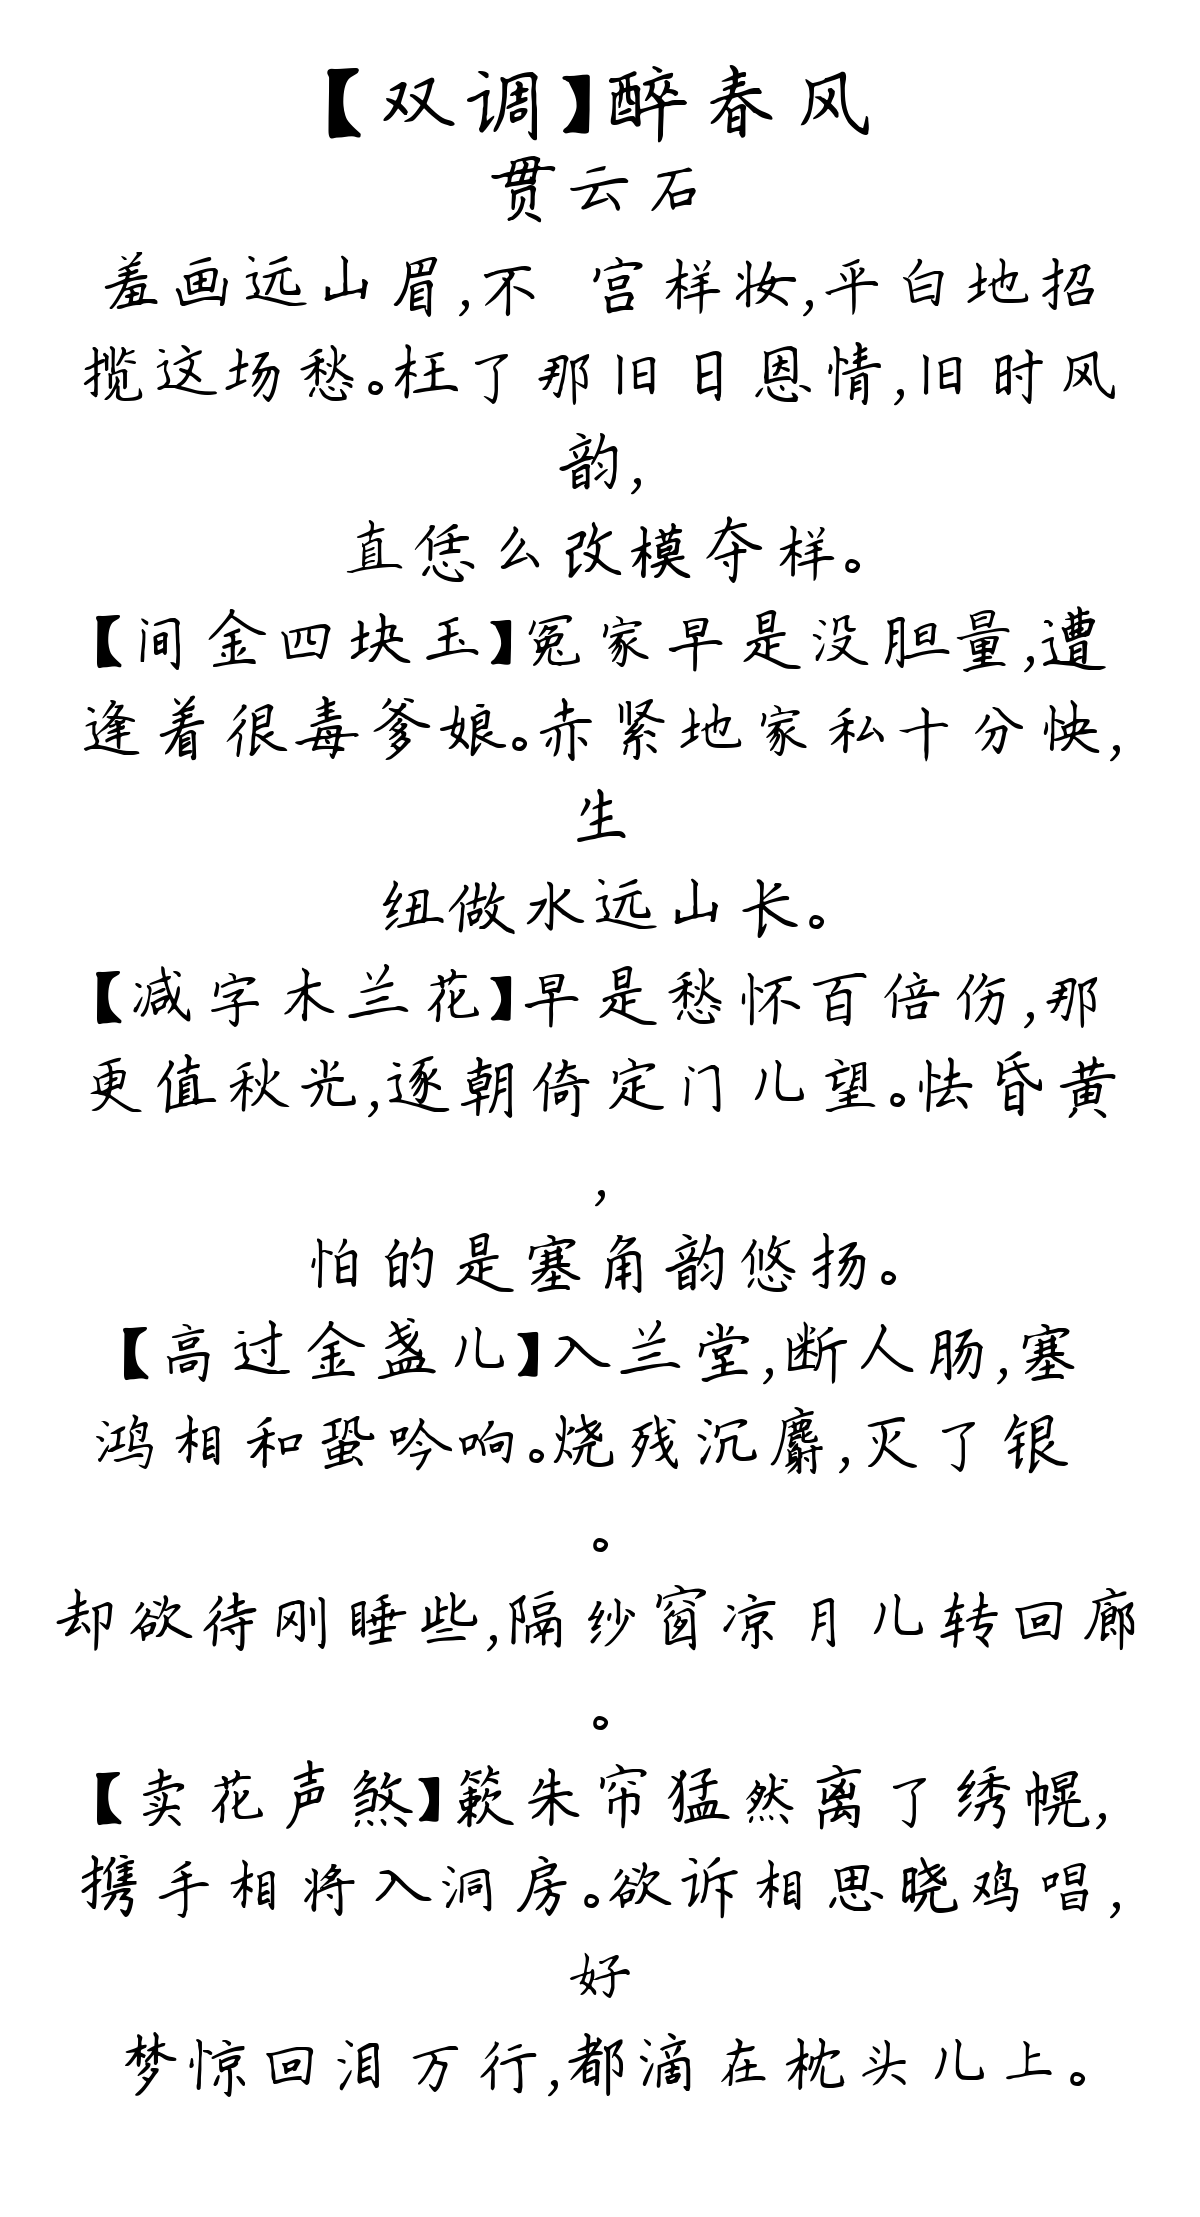 【双调】醉春风
贯云石
羞画远山眉,不 宫样妆,平白地招
揽这场愁。枉了那旧日恩情,旧时风
韵,
直恁么改模夺样。
【间金四块玉】冤家早是没胆量,遭
逢着很毒爹娘。赤紧地家私十分怏,
生
纽做水远山长。
【减字木兰花】早是愁怀百倍伤,那
更值秋光,逐朝倚定门儿望。怯昏黄
,
怕的是塞角韵悠扬。
【高过金盏儿】入兰堂,断人肠,塞
鸿相和蛩吟响。烧残沉麝,灭了银
。
却欲待刚睡些,隔纱窗凉月儿转回廊
。
【卖花声煞】簌朱帘猛然离了绣幌,
携手相将入洞房。欲诉相思晓鸡唱,
好
梦惊回泪万行,都滴在枕头儿上。